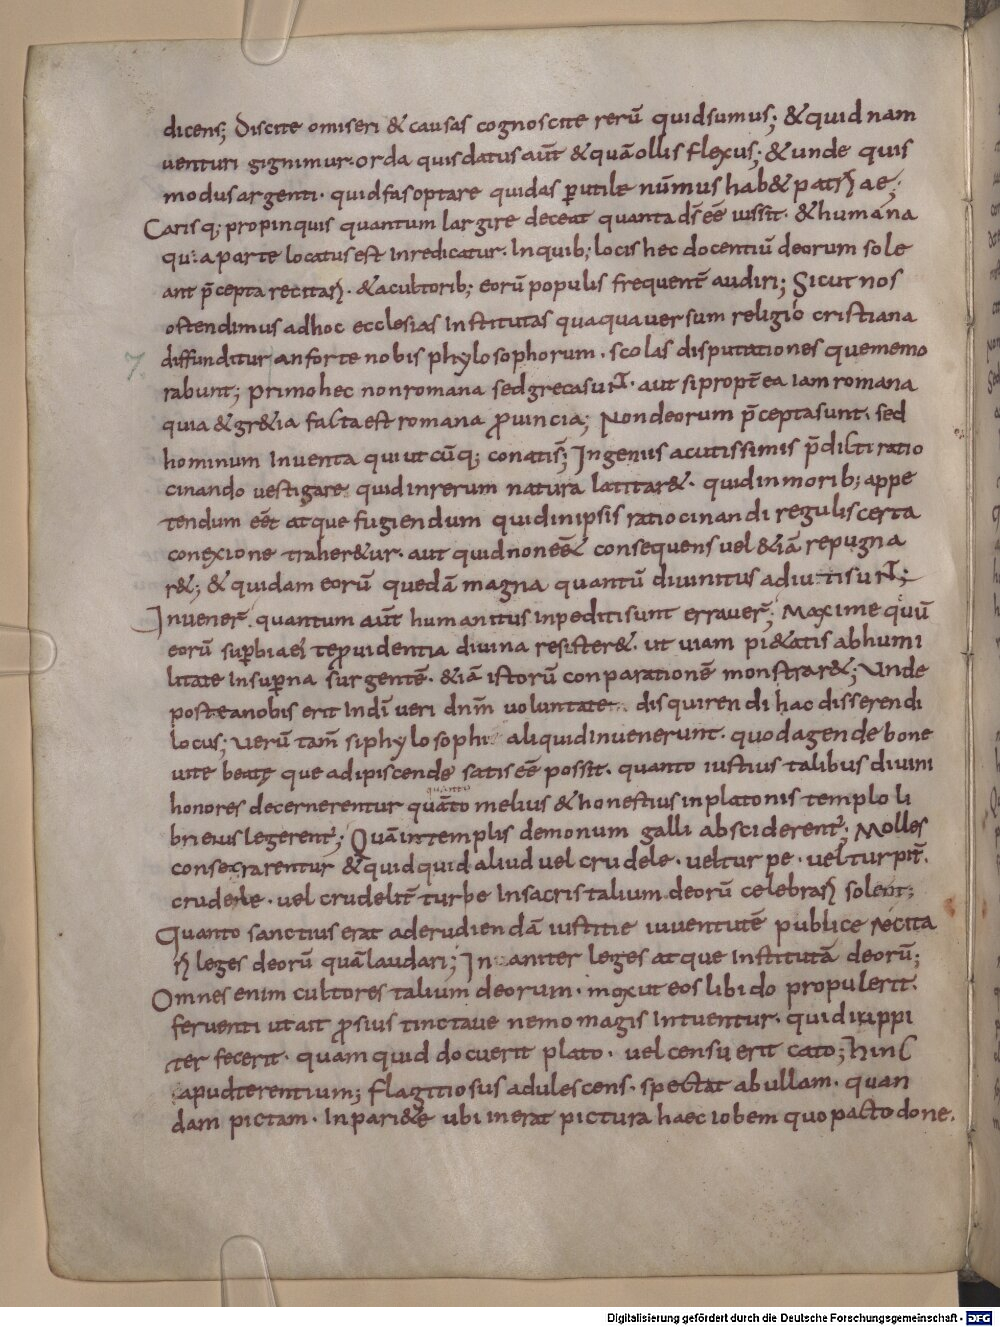 dicens; Discite omiseri & causas cognoscite rerū quidsumus; & quid nam
venturi gignimur. orda quis datus aūt & quā ollis flexus; & unde quis
modus argenti. quid fas optare quid as p̄utile nūmus hab& patrꝫ ae;
Caris q; propinquis quantum largire deceat quanta dſ eē iussit. & humana
qua parte locatus est inredicatur. Inquib; locis hec docentiū deorum sole
ant p̄cepta recitaꝝ. & acultorib; eorū populis frequent̄ audiri; Sicut nos
ostendimus adhoc ecclesias Institutas quaqua uersum religio cristiana
diffunditur an forte nobis phylosophorum. scolas disputationes quememo
rabunt; primo hec nonromana sed grecasunt. aut sipropt̄ea Iam romana
quia & gr&ia facta est romana ꝓuincia; Non deorum p̄cepta sunt. sed
hominum Inuenta qui utcūq; conatis̄; Ingenus acutissimis p̄diti ratio
cinando vestigare quid inrerum natura latitar&. quid inmorib; appe
tendum eēt atque fugiendum quid inipsis ratiocinandi regulis certa
conexione traher&ur. aut quid non eē& consequens uel &iā repugna
r&; & quidam eorū quedā magna quantū diuinitus adiuti sunt;
Inuener̄ quantum aūt humanitus inpediti sunt errauer̄; Maxime quū
eorū sup̄biae tēpuidentia diuina resister&. ut uiam pi&atis abhumi
litate Insup̄na surgentē. &iā istorū conparationē monstrar&; Vnde
postea nobis erit Indī ueri dnīm uoluntate. disquirendi hac disserendi
locus; uerū tam̄ siphylosophi aliquid inuenerunt. quod agende bone
uite beatę que adipiscende satis eē possit. quanto iustius talibus diuini
quanto
honores decernerentur quāto melius & honestius in platonis templo li
bri eius legerent̄; Quā in templis demonum galli absciderent̄; Molles
consecrarentur & quid quid aliud uel crudele. uel turpe. uel turpit̄.
crudele. uel crudelit̄ turbe In sacris talium deorū celebraꝝ solent;
Quanto sanctius erat aderudiendā iustitie iuuentutē publice recita
ꝝ leges deorū quā laudari; In aniter leges atque Institutā deorū;
Omnes enim cultores talium deorum. mox ut eos libido propulerit.
feruenti ut ait ꝓsius tinctaue nemo magis Intuentur. quid iuppi
ter fecerit. quam quid docuerit plato. uel censuerit cato; hinc
apud terentium; flagitiosus adulescens. spectat abullam. quan
dam pictam. In pari&e ubi inerat pictura haec iobem quo pacto done.
7
Digitalisierung gefördert durch die Deutsche Forschungsgemeinschaft - DFG